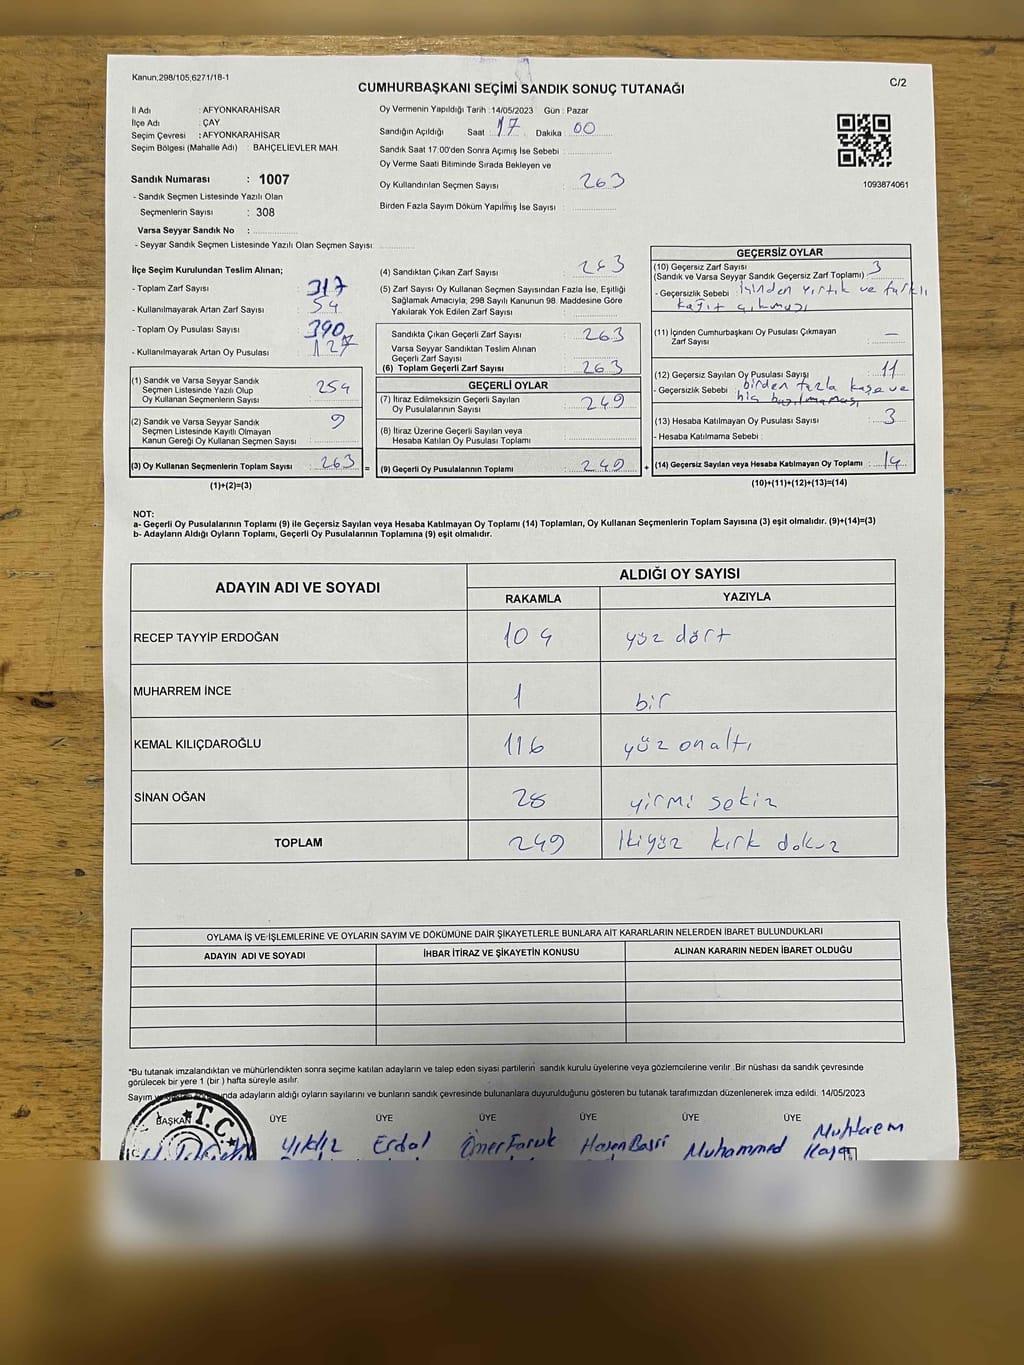 Kanun,298/105,6271/18-1
C/2
CUMHURBAŞKANI SEÇİMİ SANDIK SONUÇ TUTANAĞI
İl Adı : AFYONKARAHİSAR
İlçe Adı : ÇAY
Seçim Çevresi : AFYONKARAHİSAR
Seçim Bölgesi (Mahalle Adı) : BAHÇELİEVLER MAH.
Sandık Numarası : 1007
- Sandık Seçmen Listesinde Yazılı Olan
Seçmenlerin Sayısı : 308
Varsa Seyyar Sandık No :
- Seyyar Sandık Seçmen Listesinde Yazılı Olan Seçmen Sayısı:
Oy Vermenin Yapıldığı Tarih : 14/05/2023 Gün : Pazar
Sandığın Açıldığı Saat : 17 Dakika : 00
Sandık Saat 17:00'den Sonra Açımış İse Sebebi :
Oy Verme Saati Bitiminde Sırada Bekleyen ve
Oy Kullandırılan Seçmen Sayısı : 263
Birden Fazla Sayım Döküm Yapılmış İse Sayısı :
1093874061
İlçe Seçim Kurulundan Teslim Alınan;
- Toplam Zarf Sayısı : 317
- Kullanılmayarak Artan Zarf Sayısı : 54
- Toplam Oy Pusulası Sayısı : 390
- Kullanılmayarak Artan Oy Pusulası : 127
(1) Sandık ve Varsa Seyyar Sandık
Seçmen Listesinde Yazılı Olup
Oy Kullanan Seçmenlerin Sayısı : 254
(2) Sandık ve Varsa Seyyar Sandık
Seçmen Listesinde Kayıtlı Olmayan
Kanun Gereği Oy Kullanan Seçmen Sayısı : 9
(3) Oy Kullanan Seçmenlerin Toplam Sayısı : 263 =
(1)+(2)=(3)
(4) Sandıktan Çıkan Zarf Sayısı : 263
(5) Zarf Sayısı Oy Kullanan Seçmen Sayısından Fazla İse, Eşitliği
Sağlamak Amacıyla, 298 Sayılı Kanunun 98. Maddesine Göre
Yakılarak Yok Edilen Zarf Sayısı :
Sandıkta Çıkan Geçerli Zarf Sayısı : 263
Varsa Seyyar Sandıktan Teslim Alınan
Geçerli Zarf Sayısı :
(6) Toplam Geçerli Zarf Sayısı : 263
GEÇERLİ OYLAR
(7) İtiraz Edilmeksizin Geçerli Sayılan
Oy Pusulalarının Sayısı : 249
(8) İtiraz Üzerine Geçerli Sayılan veya
Hesaba Katılan Oy Pusulası Toplamı :
(9) Geçerli Oy Pusulalarının Toplamı : 249 +
GEÇERSİZ OYLAR
(10) Geçersiz Zarf Sayısı : 3
(Sandık ve Varsa Seyyar Sandık Geçersiz Zarf Toplamı)
- Geçersizlik Sebebi : İçinden yırtık ve farklı
kağıt çıkması
(11) İçinden Cumhurbaşkanı Oy Pusulası Çıkmayan
Zarf Sayısı : —
(12) Geçersiz Sayılan Oy Pusulası Sayısı : 11
- Geçersizlik Sebebi : birden fazla kaşe ve
hiç basılmaması
(13) Hesaba Katılmayan Oy Pusulası Sayısı : 3
- Hesaba Katılmama Sebebi :
(14) Geçersiz Sayılan veya Hesaba Katılmayan Oy Toplamı : 14
(10)+(11)+(12)+(13)=(14)
NOT:
a- Geçerli Oy Pusulalarının Toplamı (9) ile Geçersiz Sayılan veya Hesaba Katılmayan Oy Toplamı (14) Toplamları, Oy Kullanan Seçmenlerin Toplam Sayısına (3) eşit olmalıdır. (9)+(14)=(3)
b- Adayların Aldığı Oyların Toplamı, Geçerli Oy Pusulalarının Toplamına (9) eşit olmalıdır.
ADAYIN ADI VE SOYADI
ALDIĞI OY SAYISI
RAKAMLA YAZIYLA
RECEP TAYYİP ERDOĞAN 104 yüz dört
MUHARREM İNCE 1 bir
KEMAL KILIÇDAROĞLU 116 yüz onaltı
SİNAN OĞAN 28 yirmi sekiz
TOPLAM 249 İkiyüz kırk dokuz
OYLAMA İŞ VE İŞLEMLERİNE VE OYLARIN SAYIM VE DÖKÜMÜNE DAİR ŞİKAYETLERLE BUNLARA AİT KARARLARIN NELERDEN İBARET BULUNDUKLARI
ADAYIN ADI VE SOYADI İHBAR İTİRAZ VE ŞİKAYETİN KONUSU ALINAN KARARIN NEDEN İBARET OLDUĞU
*Bu tutanak imzalandıktan ve mühürlendikten sonra seçime katılan adayların ve talep eden siyasi partilerin sandık kurulu üyelerine veya gözlemcilerine verilir .Bir nüshası da sandık çevresinde
görülecek bir yere 1 (bir ) hafta süreyle asılır.
Sayım adayların aldığı oyların sayılarını ve bunların sandık çevresinde bulunanlara duyurulduğunu gösteren bu tutanak tarafımızdan düzenlenerek imza edildi. 14/05/2023
BAŞKAN ÜYE ÜYE ÜYE ÜYE ÜYE ÜYE
T.C.
Yıldız Erdal Ömer Faruk Hasan Basri Muhammed Muharrem
Kaya